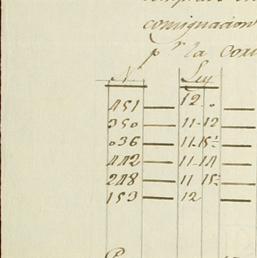 comignacion
pr la
N. Ley
451 — 12 .
350 — 11-12
036 — 11-15½
442 — 11-14
248 — 11 15½
153 — 12